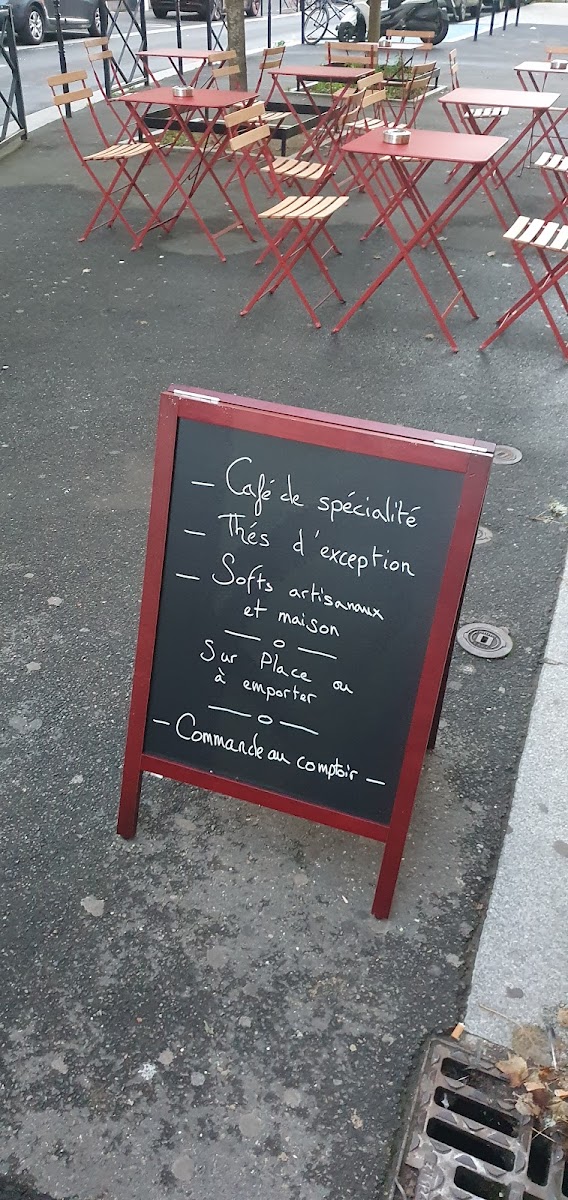 — Café de spécialité
— Thés d'exception
— Softs artisanaux
et maison
— o —
Sur Place ou
à emporter
— o —
— Commande au comptoir —